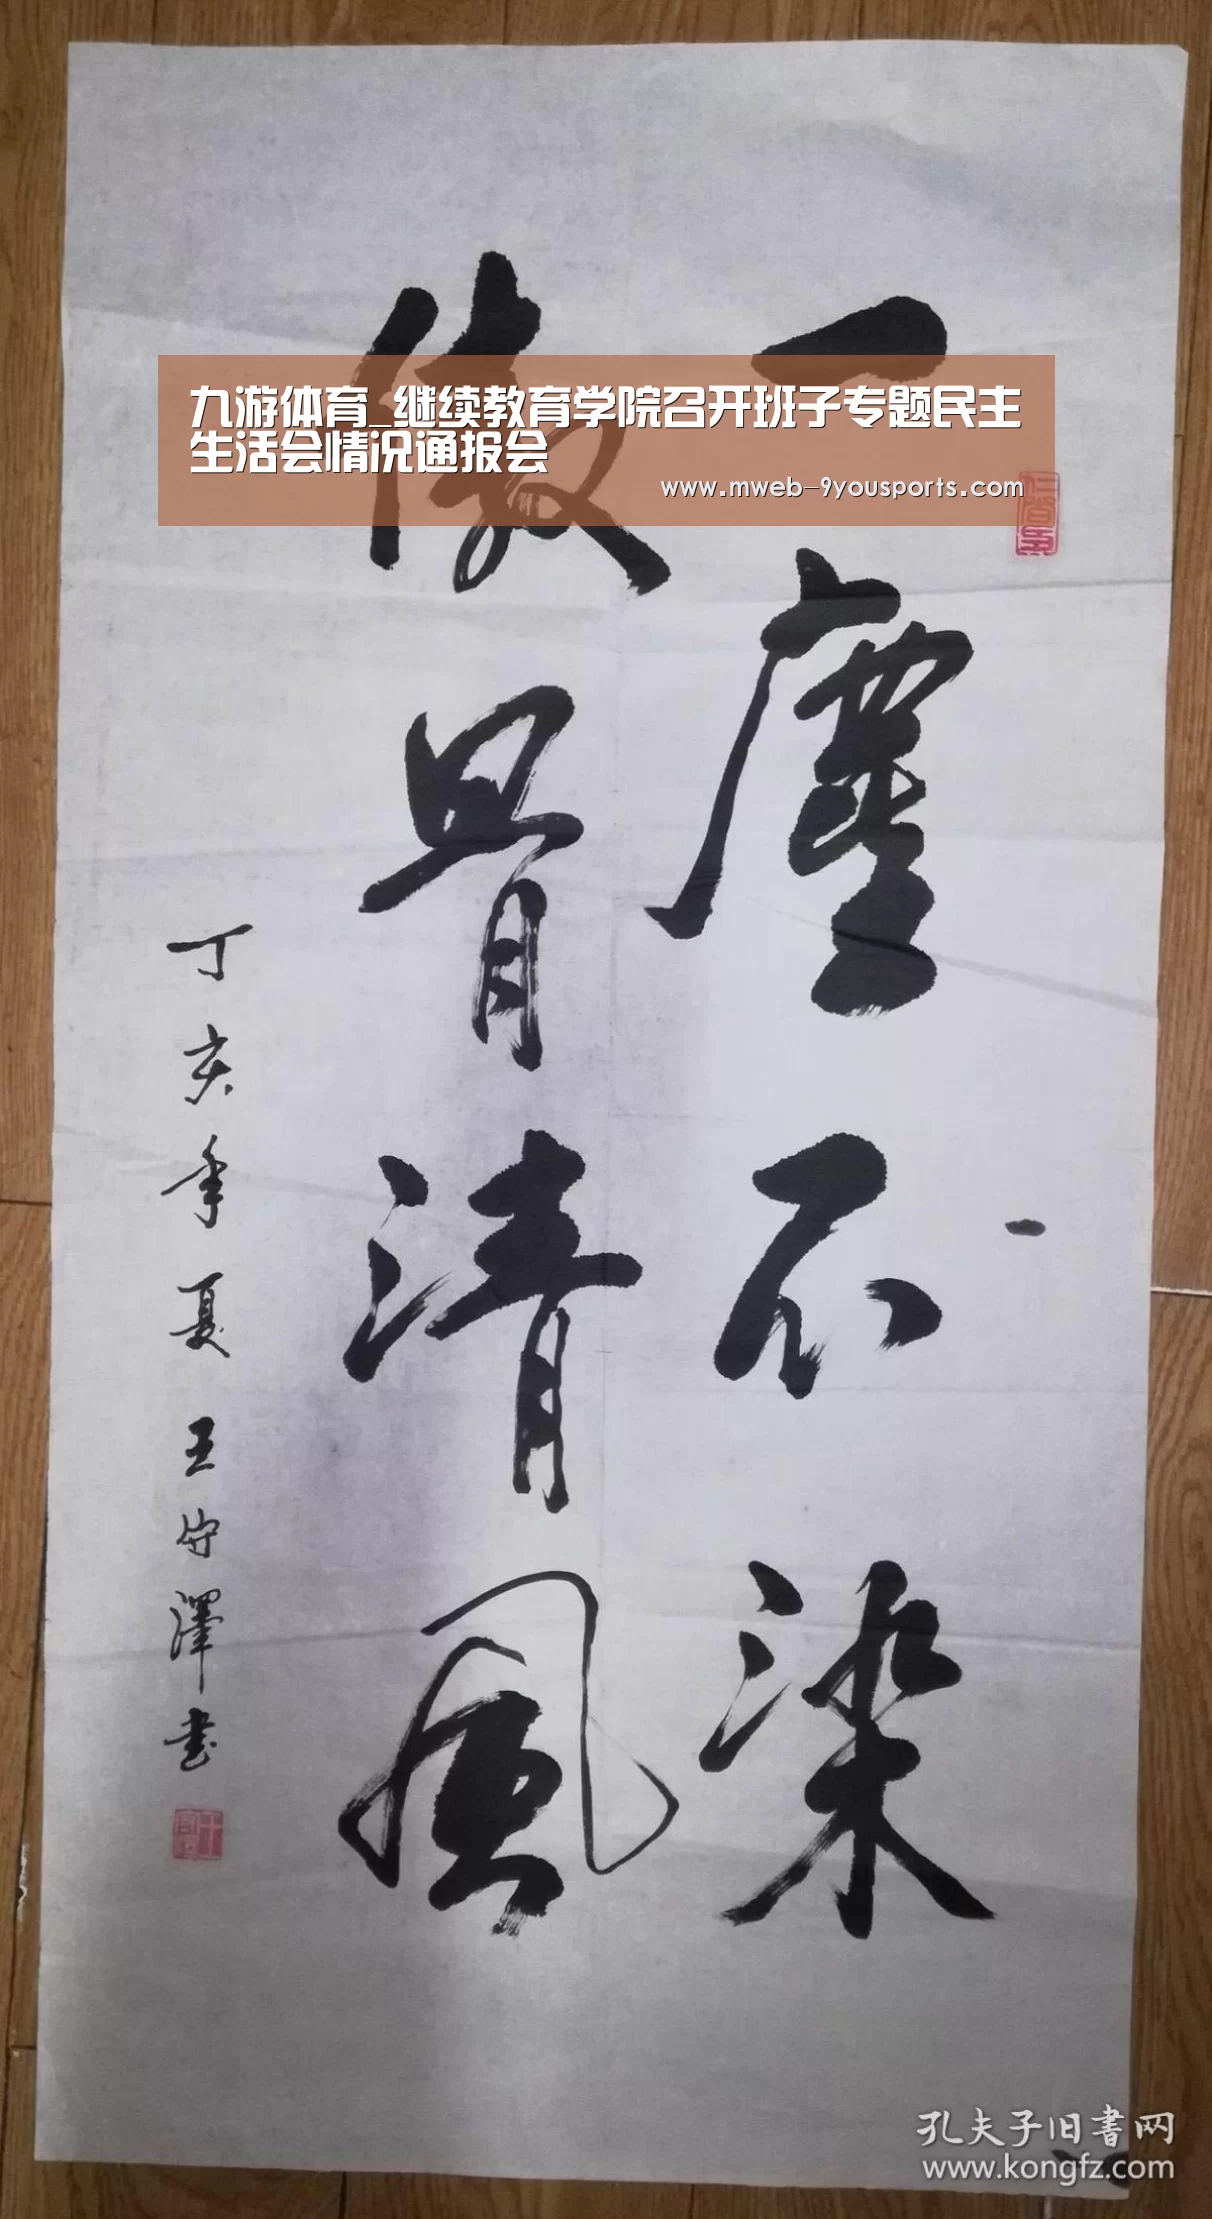 九游体育_继续教育学院召开班子专题民主
生活会情况通报会
www.mweb-9yousports.com
一塵不染
傲骨清風
丁亥年夏王守澤书
孔夫子旧書网
www.kongfz.com